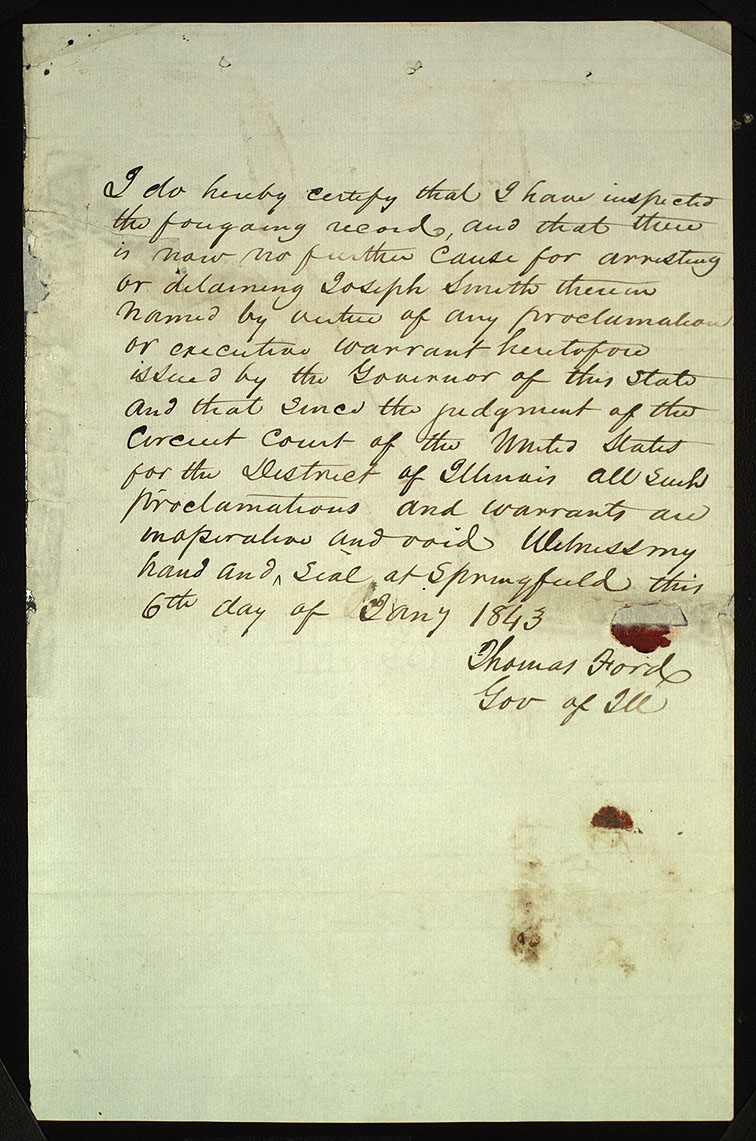 I do hereby certify that I have inspected
the foregoing record, and that there
is now no further cause for arresting
or detaining Joseph Smith therein
named by virtue of any proclamation
or executive warrant heretofore
issued by the Governor of this State
and that since the judgment of the
Circuit Court of the United States
for the District of Illinois all such
proclamations and warrants are
inoperative and void Witness my
hand and ^ seal at Springfield this
6th day of Jany 1843
Thomas Ford
Gov of Ill